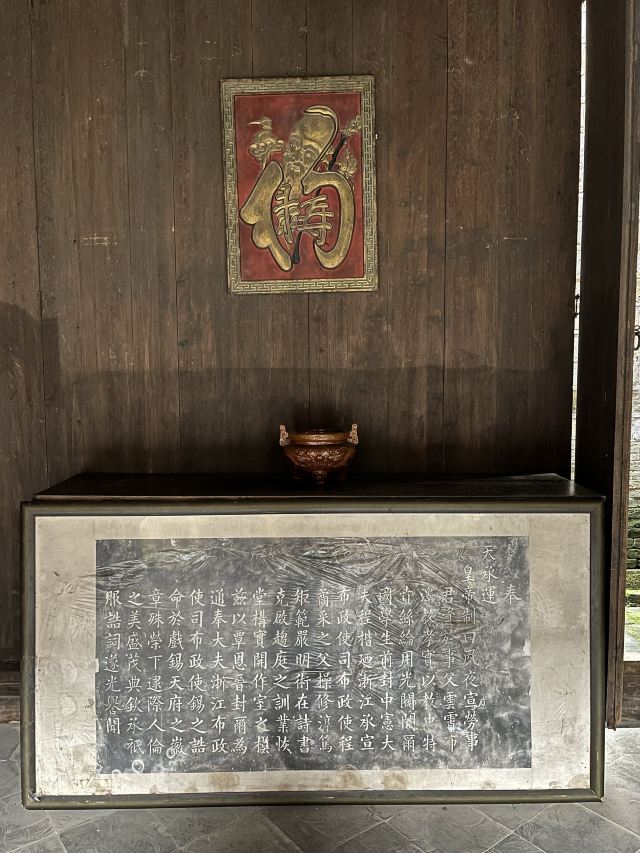 奉
天承運
皇帝制曰夙夜宣勞事
君資於事父雲霄布
教孝實以教忠特
賁絲綸用光閥閱爾
國學生前封中憲大
夫程揩廼浙江承宣
布政使司布政使程
矞采之父操修淳篤
矩範嚴明術在詩書
克啟趨庭之訓業恢
堂構實開作室之模
茲以覃恩晉封爾為
通奉大夫浙江布政
使司布政使錫之誥
命於戲錫天府之徽
章殊榮下逮際人倫
之美盛茂典欽承祗
服誥詞遂光譽聞